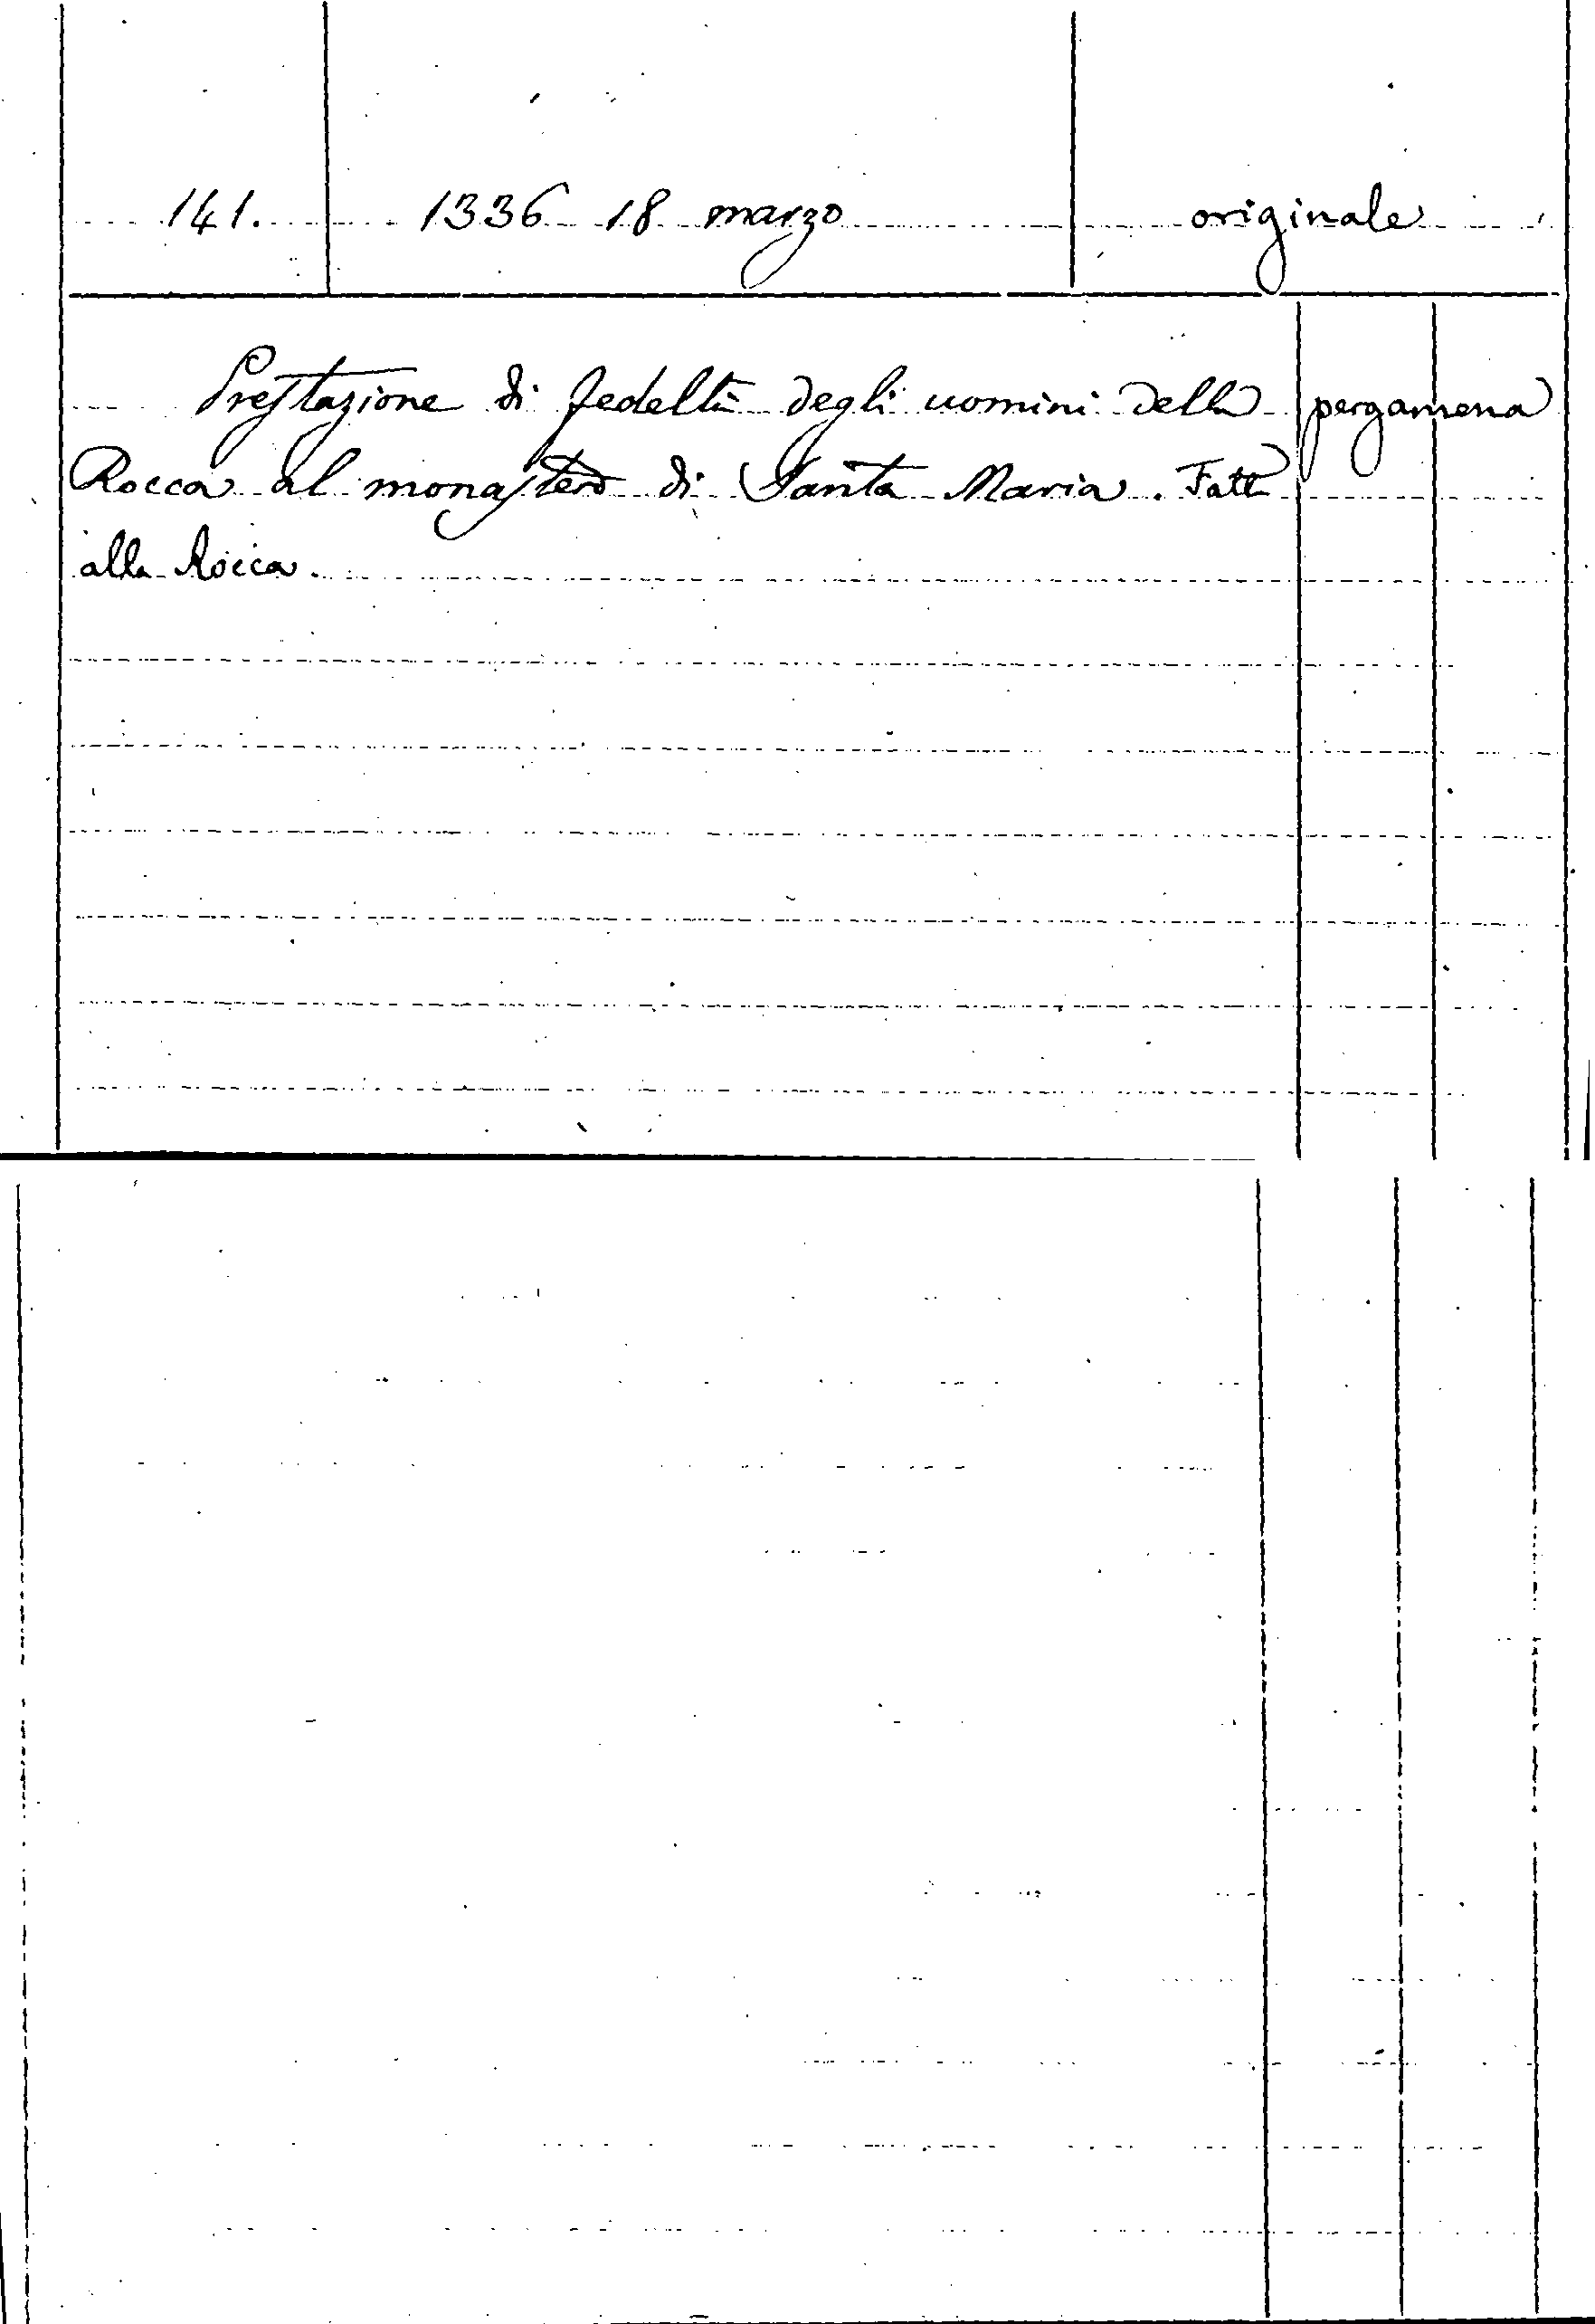 141. 1336 18 marzo originale
Prestazione di fedeltà degli uomini della pergamena
Rocca al monastero di Santa Maria. Fatta
alla Rocca.